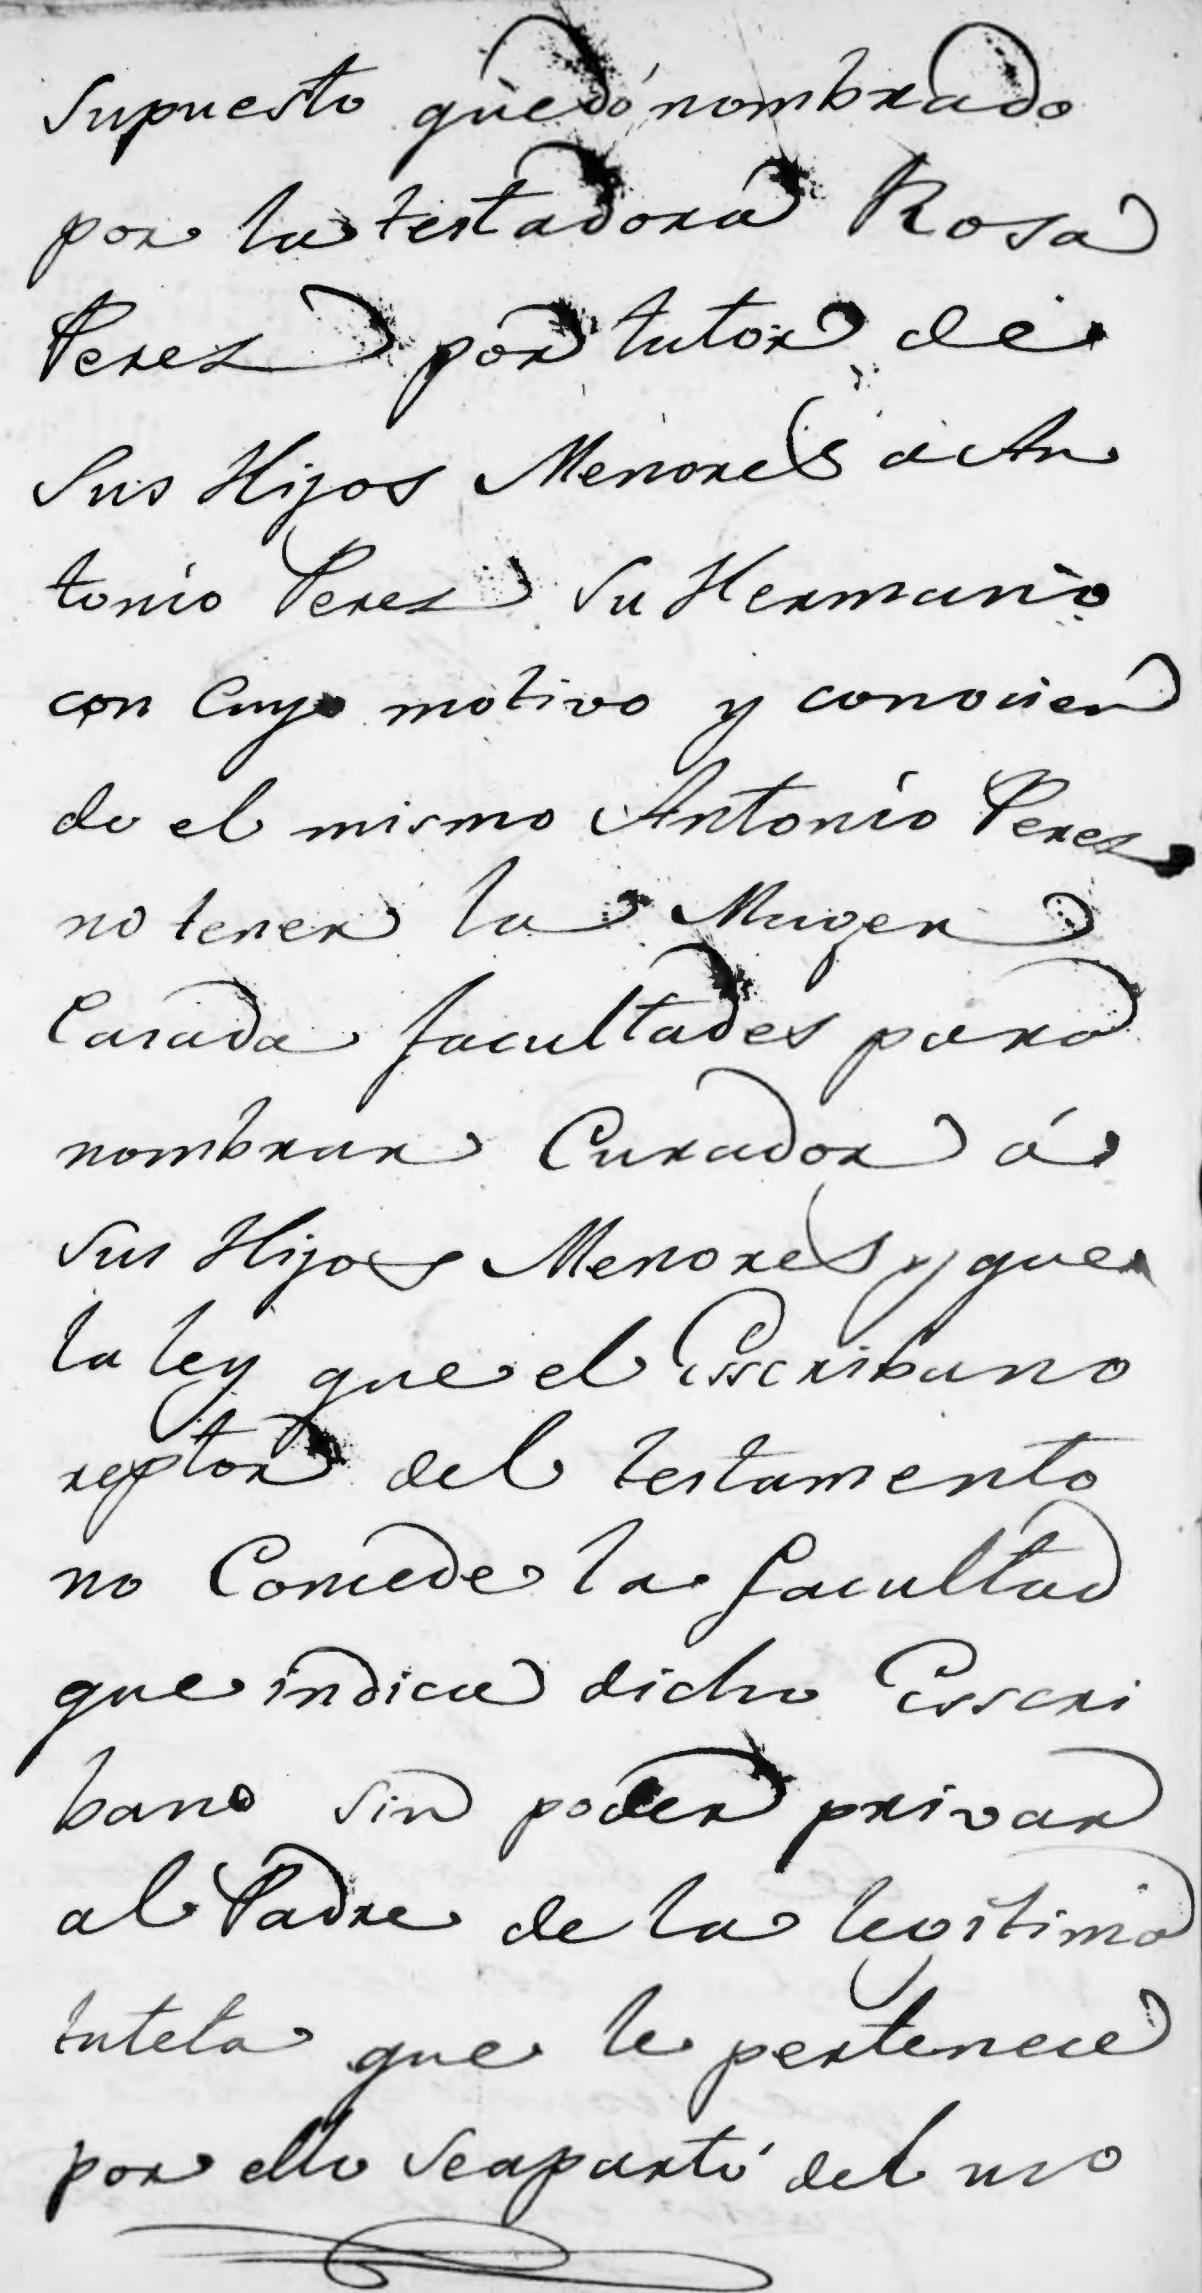 supuesto quedó nombrado
por la testadora Rosa
Peres por tutor de
Sus Hijos Menores a An
tonio Peres Su Hermano
con Cuyo motivo y conocien
do el mismo Antonio Peres
no tener la Muger
Casada facultades para
nombrar Curador á
Sus Hijos Menores y que
la ley que el Esscribano
reptor del testamento
no Concede la facultad
que indica dicho Esscri
bano sin poder privar
al Padre de la legitima
tutela que le pertenece
por ello Seapartó del uso